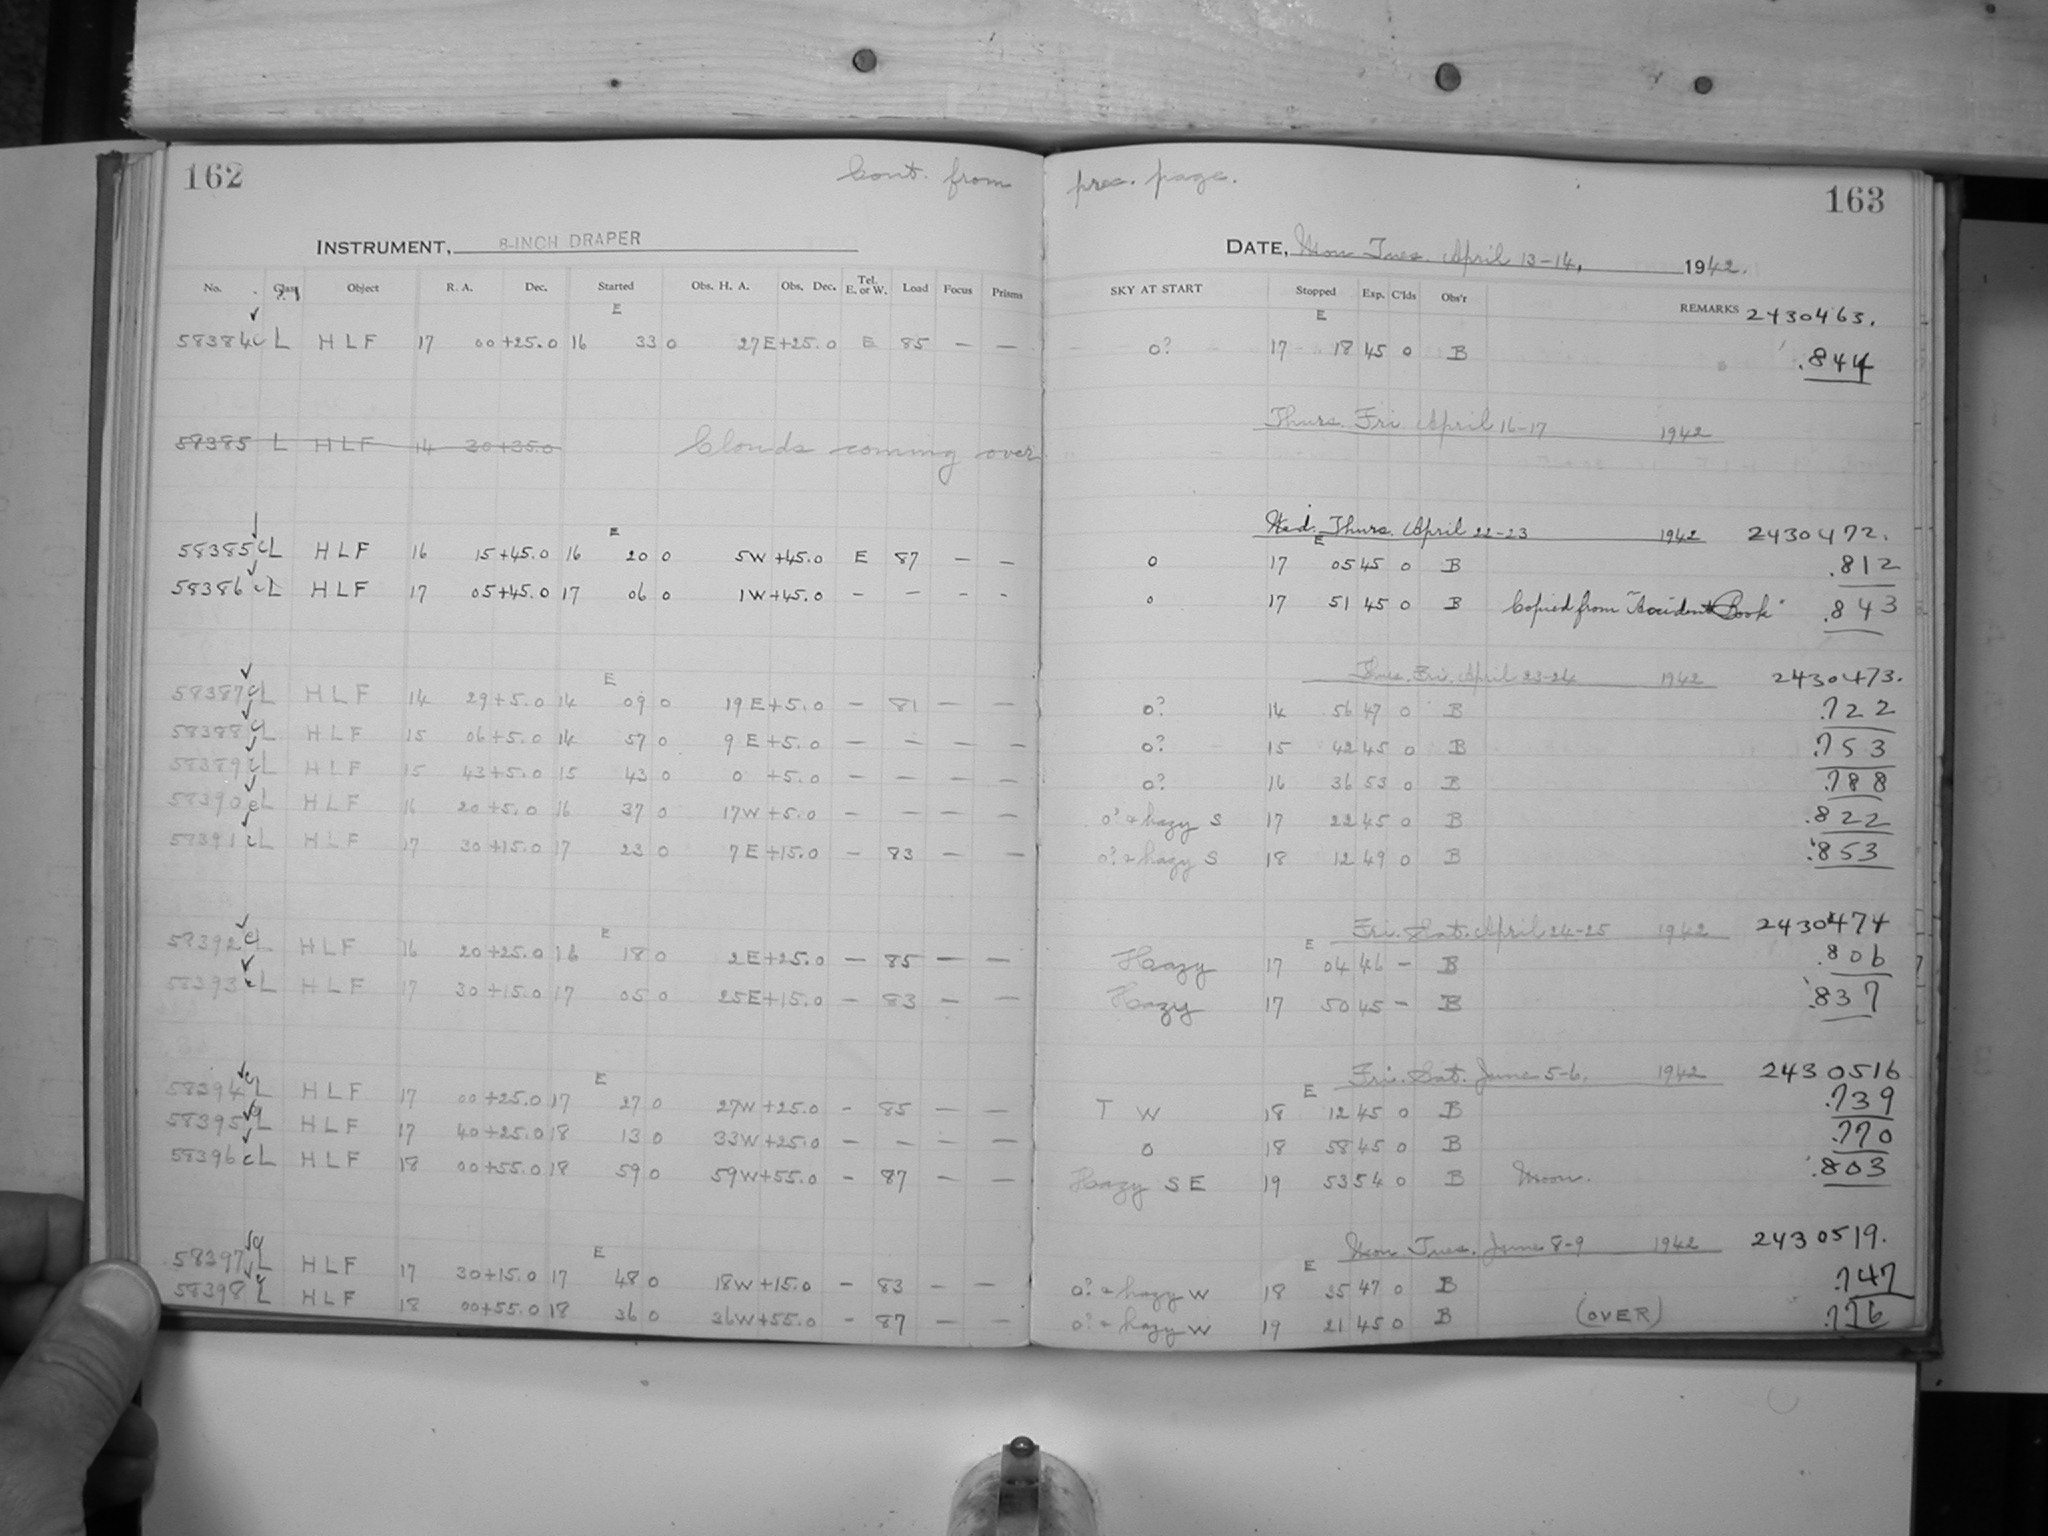 162 Cont. from prec. page. 163
INSTRUMENT, 8-INCH DRAPER DATE, Mon Tues. April 13-14, 1942.
No. Class Object R. A. Dec. Started Obs. H. A. Obs. Dec. Tel. E. or W. Load Focus Prisms SKY AT START Stopped Exp. C'lds Obs'r REMARKS 2430463.
E E
58384 c L H L F 17 00 +25.0 16 33 0 27E +25.0 E 85 — — o? 17 18 45 0 B .844
Thurs. Fri April 16-17 1942
58385 L H L F 14 30 +35.0 Clouds coming over
Wed. Thurs. April 22-23 1942 2430472.
E E
58385 c L H L F 16 15 +45.0 16 20 0 5W +45.0 E 87 — — o 17 05 45 0 B .812
58386 c L H L F 17 05 +45.0 17 06 0 1W +45.0 — — — - o 17 51 45 0 B Copied from "Accident Book" .843
Thurs. Fri. April 23-24 1942 2430473.
E
58387 c L H L F 14 29 +5.0 14 09 0 19E +5.0 — 81 — — o? 14 56 47 0 B .722
58388 c L H L F 15 06 +5.0 14 57 0 9E +5.0 — — — — o? 15 42 45 0 B .753
58389 c L H L F 15 43 +5.0 15 43 0 0 +5.0 — — — — o? 16 36 53 0 B .788
58390 c L H L F 16 20 +5.0 16 37 0 17W +5.0 — — — — o? & hazy S 17 22 45 0 B .822
58391 c L H L F 17 30 +15.0 17 23 0 7E +15.0 — 83 — — o? & hazy S 18 12 49 0 B .853
Fri. Sat. April 24-25 1942 2430474
E E
58392 c L H L F 16 20 +25.0 16 18 0 2E +25.0 — 85 — — Hazy 17 04 46 — B .806
58393 c L H L F 17 30 +15.0 17 05 0 25E +15.0 — 83 — — Hazy 17 50 45 — B .837
Fri. Sat. June 5-6, 1942 2430516
E E
58394 c L H L F 17 00 +25.0 17 27 0 27W +25.0 - 85 — — T W 18 12 45 0 B .739
58395 c L H L F 17 40 +25.0 18 13 0 33W +25.0 — - — — o 18 58 45 0 B .770
58396 c L H L F 18 00 +55.0 18 59 0 59W +55.0 - 87 — — Hazy S E 19 53 54 0 B Moon. .803
Mon Tues. June 8-9 1942 2430519.
E E
58397 c L H L F 17 30 +15.0 17 48 0 18W +15.0 — 83 — — o? & hazy W 18 35 47 0 B .747
58398 c L H L F 18 00 +55.0 18 36 0 36W +55.0 - 87 — — o? & hazy W 19 21 45 0 B (OVER) .776